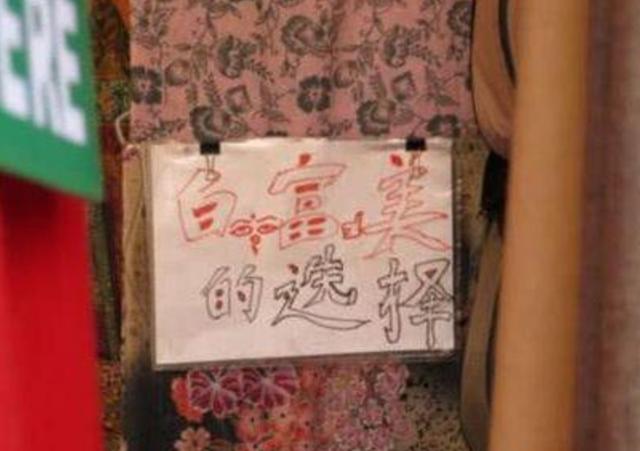 ERE
白富美
的选择